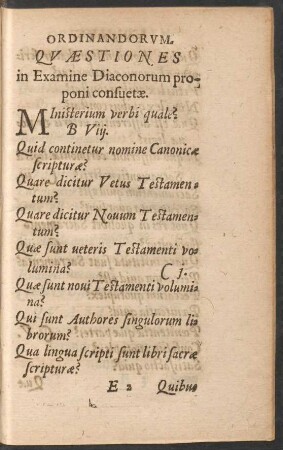 ORDINANDORVM.
QVÆSTIONES
in Examine Diaconorum pro-
poni consuetæ.
MInisterium verbi quale?
B Vij.
Quid continetur nomine Canonicæ
scripturæ?
Quare dicitur Vetus Testamen-
tum?
Quare dicitur Nouum Testamen-
tum?
Quæ sunt ueteris Testamenti vo-
lumina?
C j.
Quæ sunt noui Testamenti volumi-
na?
Qui sunt Authores singulorum li-
brorum?
Qua lingua scripti sunt libri sacræ
scripturæ?
E 2 Quibus